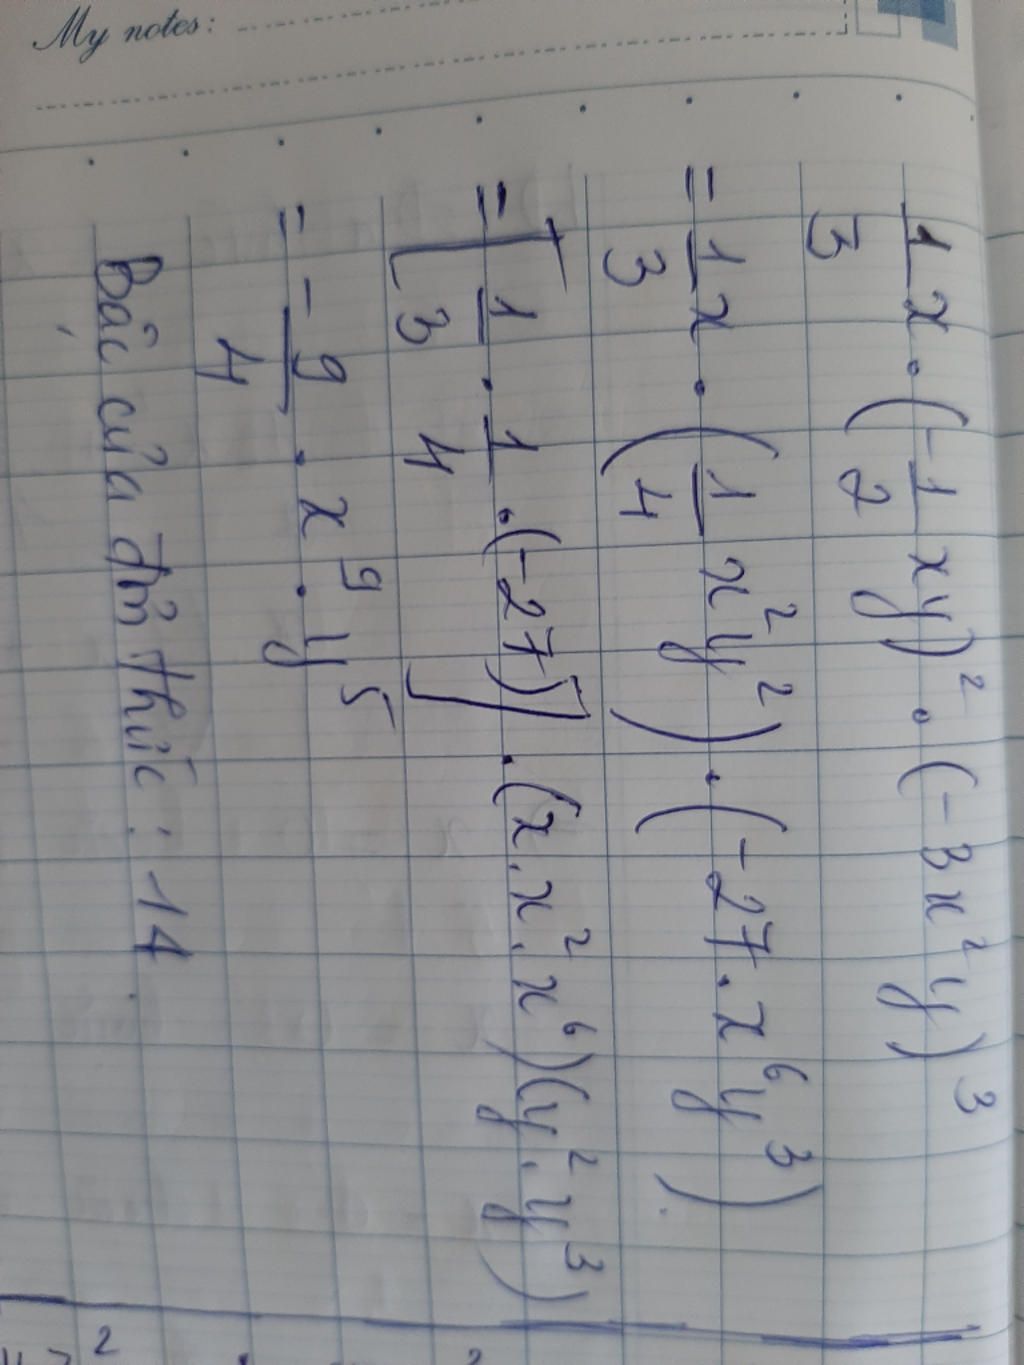 My notes:
1/3 x . (-1/2 xy)² . (-3x²y)³
= 1/3 x . (1/4 x²y²) . (-27 . x⁶y³).
= [1/3 . 1/4 . (-27)] . (x . x² . x⁶)(y² . y³)
= -9/4 . x⁹ . y⁵
Bậc của đơn thức : 14.